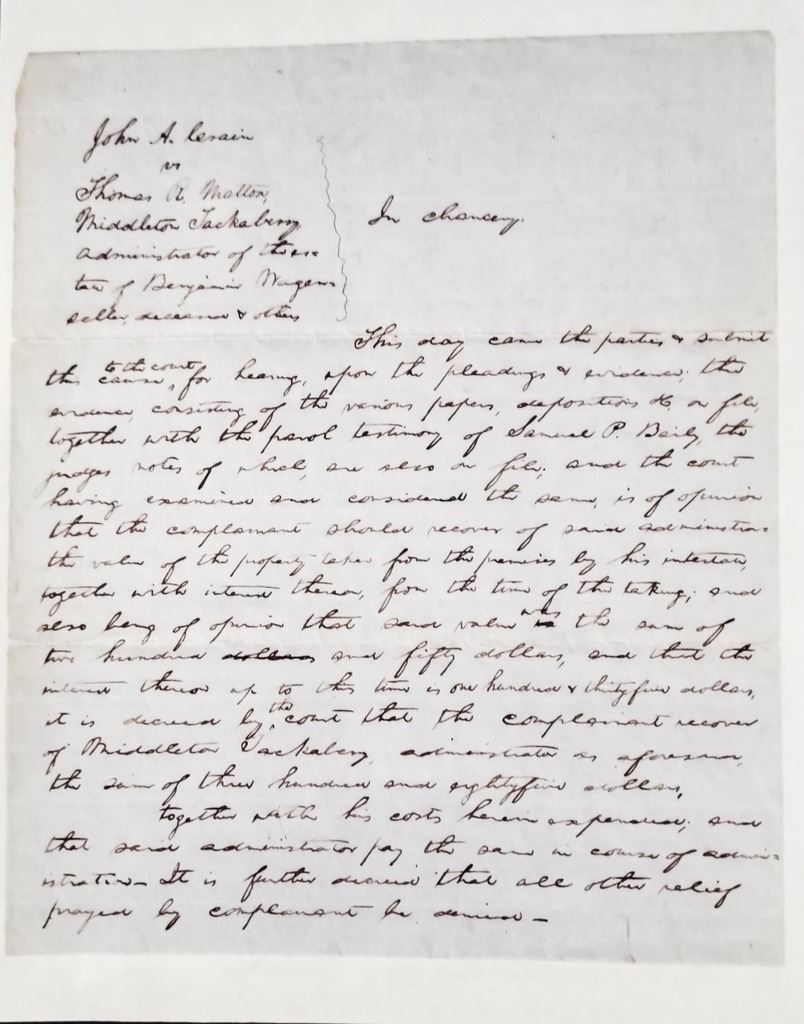 John A. Cesain
vs
Thomas R. Matton,
Middleton Tackabery,
administrator of the es-
tate of Benjamin Wagen-
seller, deceased & others
In chancery.
This day came the parties & submit
this cause, to the court, for hearing, upon the pleadings & evidence; the
evidence, consisting of the various papers, depositions &c on file,
together with the parol testimony of Samuel P. Baily, the
judges notes of which, are also on file; and the court
having examined and considered the same, is of opinion
that the complainant should recover of said administrator
the value of the property taken from the premises by his intestate,
together with interest thereon, from the time of the taking; and
also being of opinion that said value was the sum of
two hundred dollars and fifty dollars, and that the
interest thereon up to this time is one hundred & thirtyfive dollars,
it is decreed by the court that the complainant recover
of Middleton Tackabery, administrator as aforesaid,
the sum of three hundred and eightyfive dollars,
together with his costs herein expended; and
that said administrator pay the same in course of admin-
istration— It is further decreed that all other relief
prayed by complainant be denied—